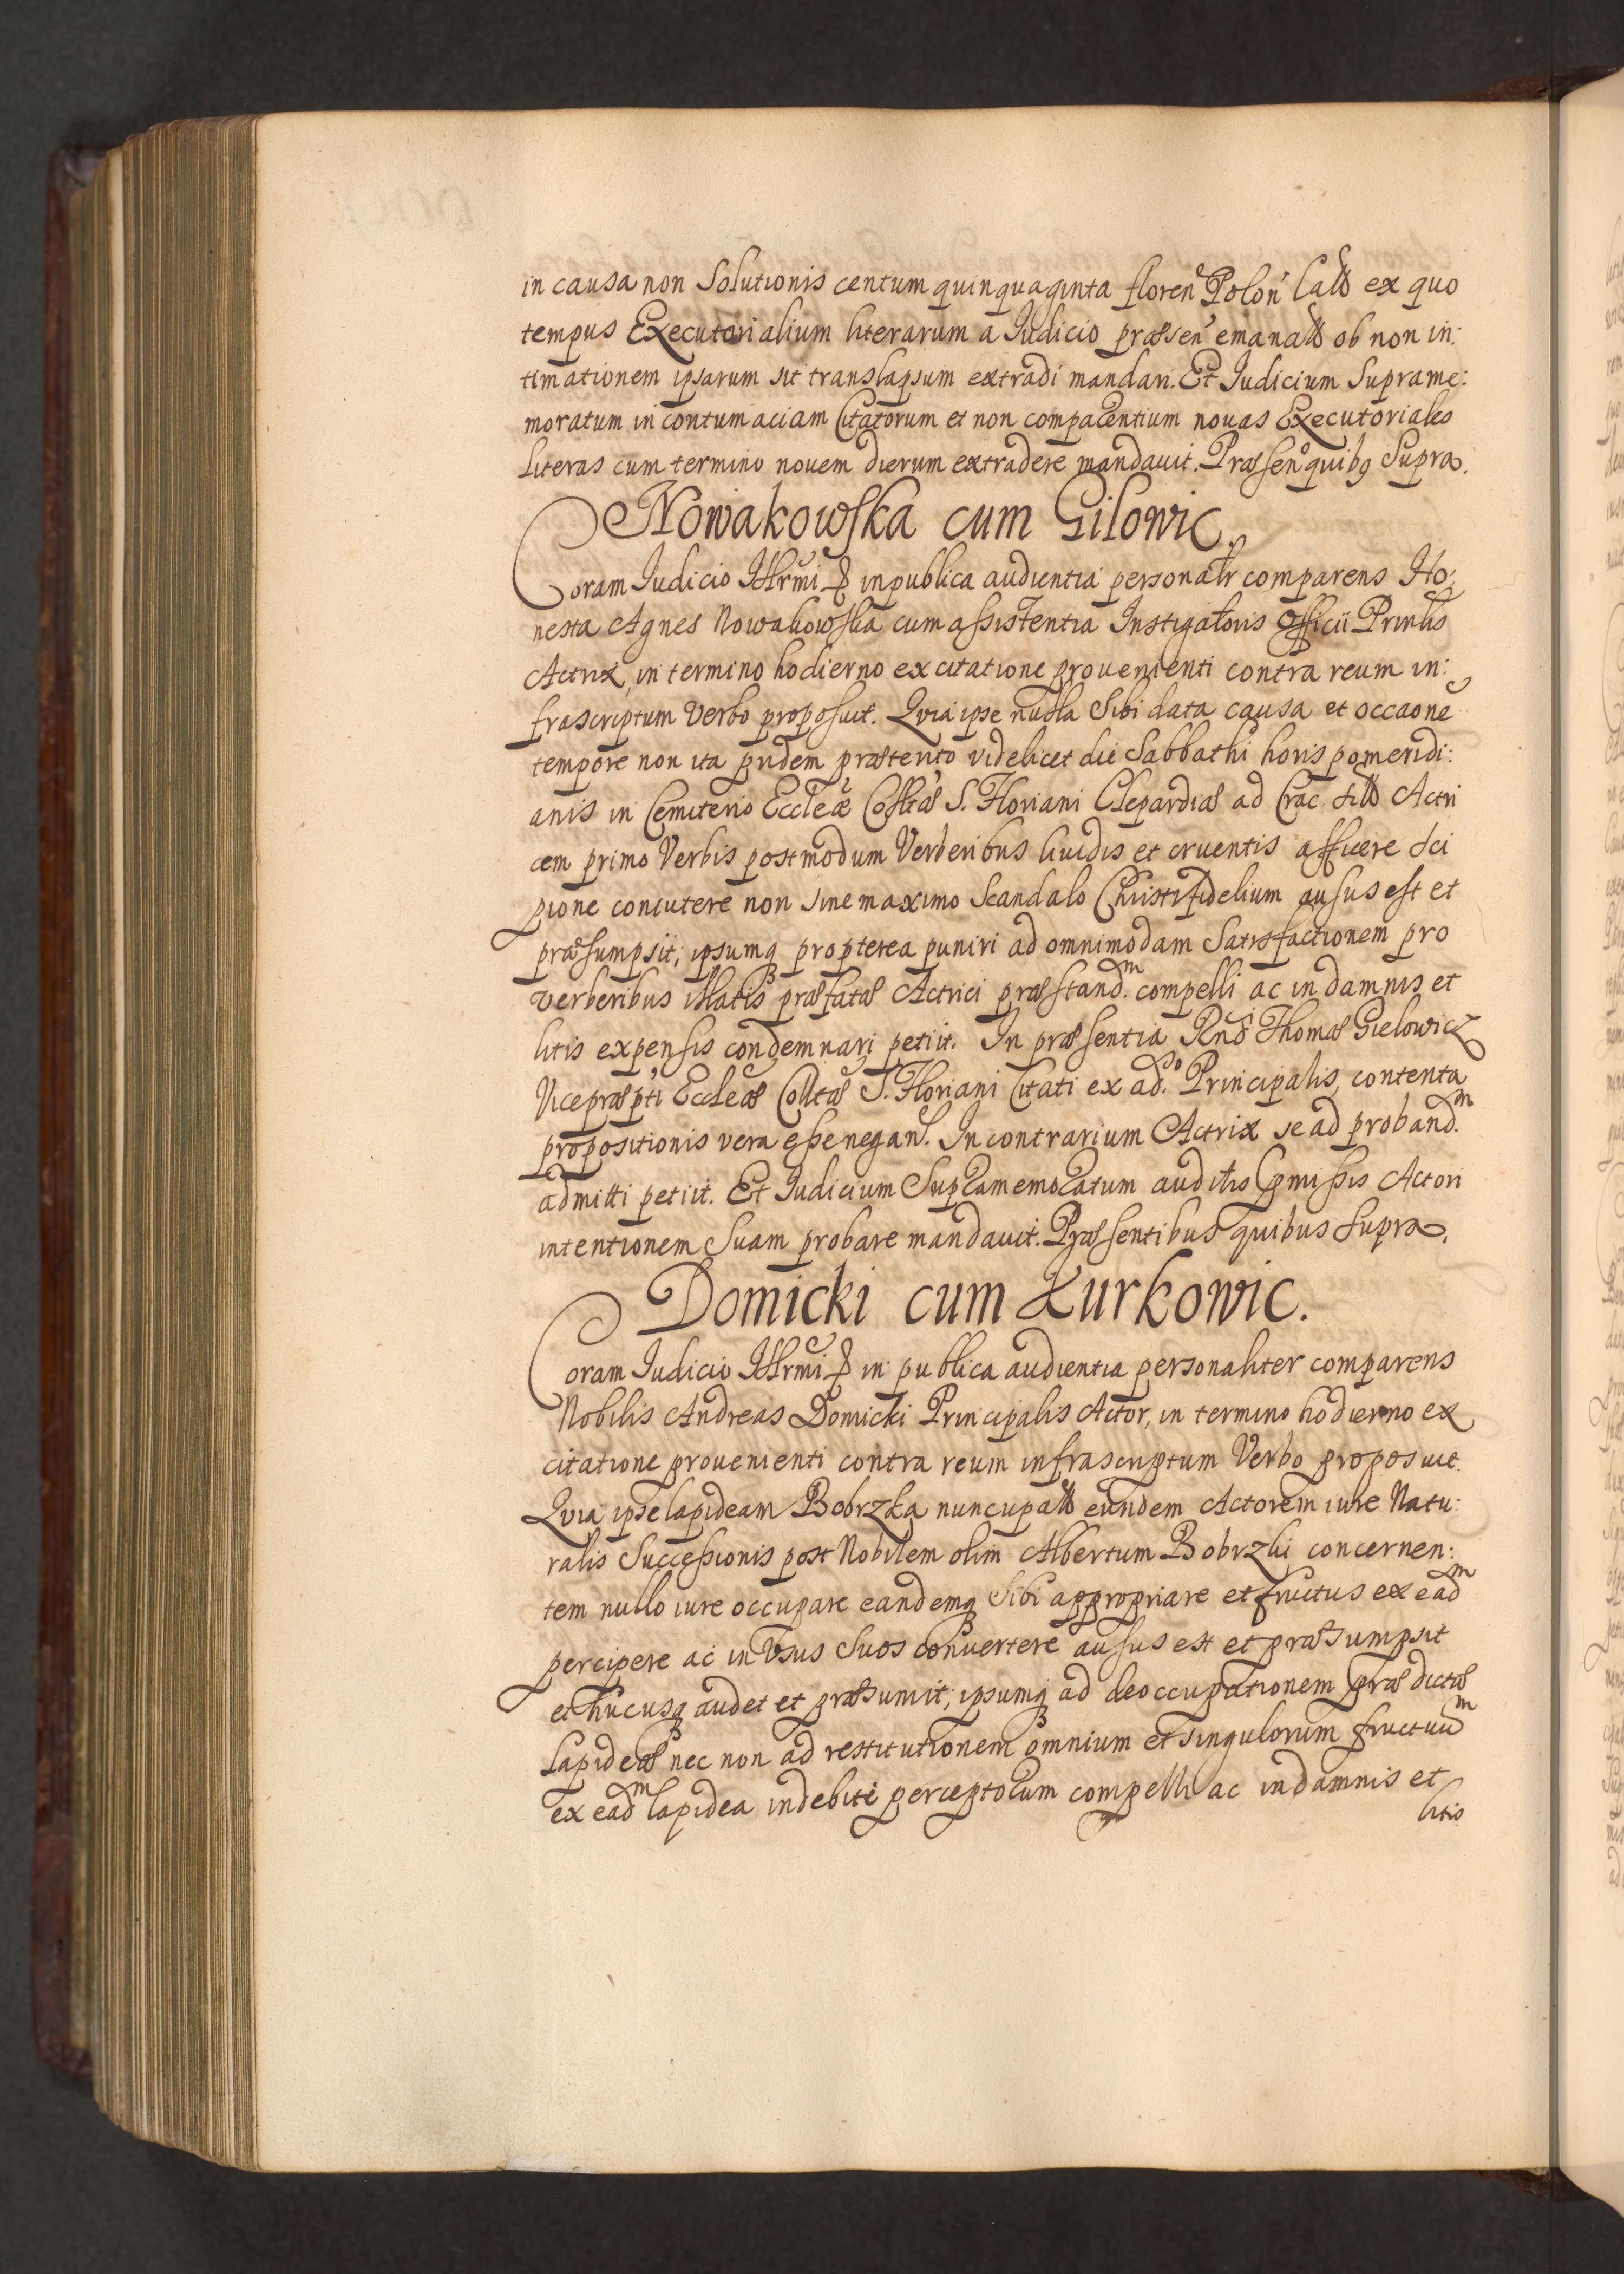 in causa non Solutionis centum quinquaginta floren Polon latt ex quo
tempus Executorialium literarum a Iudicio præsen emanatt ob non in:
timationem ipsarum sit translapsum extradi mandari. Et Iudicium Suprame:
moratum in contumaciam Citatorum et non comparentium novas Executoriales
literas cum termino novem dierum extradere mandavit. Præsen quibg Supra.
Nowakowska cum Gilowic.
Coram Iudicio Illrmi in publica audientia personalr comparens Ho:
nesta Agnes Nowakowska cum assistentia Instigatoris Officii Prinlis
Actrix, in termino hodierno ex citatione provenienti contra reum in:
frascriptum Verbo proposuit. Quia ipse nulla Sibi data causa et occaone
tempore non ita pridem prætento videlicet die Sabbathi horis pomeridi:
anis in Cemiterio Eccleæ Colltæ S. Floriani Clepardiæ ad Crac Actri
cem primo Verbis postmodum Verberibus lividis et cruentis afficere Sci
pione concutere non sine maximo Scandalo Christifidelium ausus est et
præsumpsit; ipsumq propterea puniri ad omnimodam Satisfactionem pro
verberibus illatis præfatæ Actrici præstandm compelli ac in damnis et
litis expensis condemnari petiit. In præsentia Rndi Thomæ Gielowicz
Vicepræpti Eccleæ Colltæ S. Floriani Citati ex ado Principalis, contenta
propositionis vera esse negan. In contrarium Actrix se ad probandm
admitti petiit. Et Iudicium Supramemoratum auditis pmissis Actori
intentionem Suam probare mandavit. Præsentibus quibus Supra.
Domicki cum Kurkowic.
Coram Iudicio Illrmi in publica audientia personaliter comparens
Nobilis Andreas Domicki Principalis Actor, in termino hodierno ex
citatione provenienti contra reum infrascriptum Verbo proposuit.
Quia ipse lapideam Bobrzka nuncupatt eundem Actorem iure Natu:
ralis Successionis post Nobilem olim Albertum Bobrzki concernen:
tem nullo iure occupare eandemq Sibi appropriare et fructus ex eadm
percipere ac in Usus Suos convertere ausus est et præsumpsit
et hucusq audet et præsumit; ipsumq ad deoccupationem prædictæ
Lapideæ nec non ad restitutionem omnium et singulorum fructuum
ex eadm lapidea indebite perceptorum compelli ac in damnis et
litis